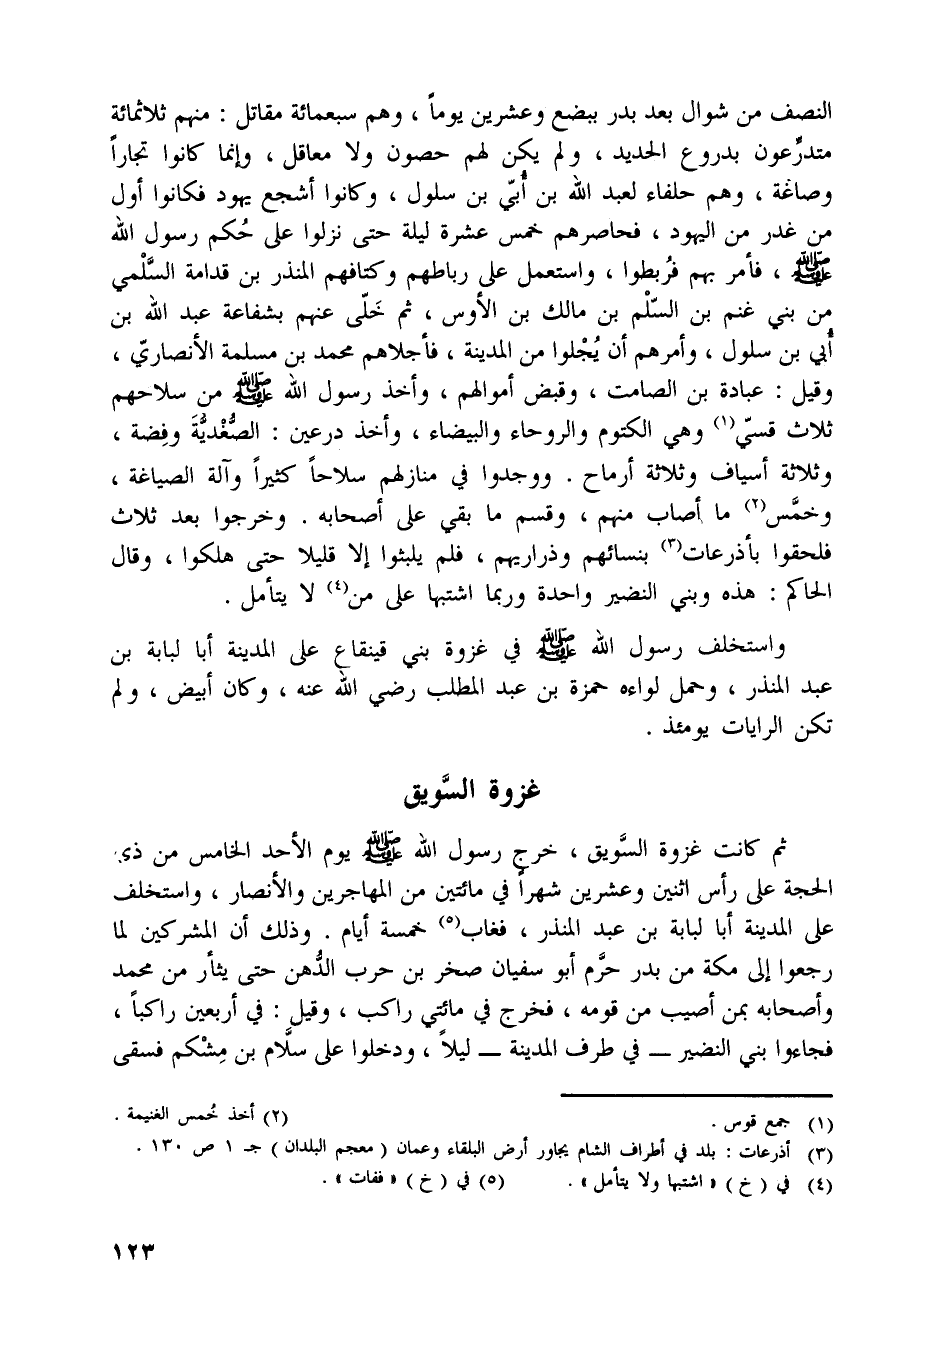 النصف من شوال بعد بدر ببضع وعشرين يوماً ، وهم سبعمائة مقاتل : منهم ثلاثمائة
متدرِّعون بدروع الحديد ، ولم يكن لهم حصون ولا معاقل ، وإنما كانوا تجاراً
وصاغة ، وهم حلفاء لعبد الله بن أُبيّ بن سلول ، وكانوا أشجع يهود فكانوا أول
من غدر من اليهود ، فحاصرهم خمس عشرة ليلة حتى نزلوا على حُكم رسول الله
ﷺ ، فأمر بهم فرُبطوا ، واستعمل على رباطهم وكتافهم المنذر بن قدامة السَّلْمي
من بني غنم بن السّلْم بن مالك بن الأوس ، ثم خَلّى عنهم بشفاعة عبد الله بن
أُبي بن سلول ، وأمرهم أن يُجْلوا من المدينة ، فأجلاهم محمد بن مسلمة الأنصاريّ ،
وقيل : عبادة بن الصامت ، وقبض أموالهم ، وأخذ رسول الله ﷺ من سلاحهم
ثلاث قسيّ(١) وهي الكتوم والروحاء والبيضاء ، وأخذ درعين : الصُّغْديُّةَ وفِضة ،
وثلاثة أسياف وثلاثة أرماح . ووجدوا في منازلهم سلاحاً كثيراً وآلة الصياغة ،
وخمَّس(٢) ما أصاب منهم ، وقسم ما بقي على أصحابه . وخرجوا بعد ثلاث
فلحقوا بأذرعات(٣) بنسائهم وذراريهم ، فلم يلبثوا إلا قليلا حتى هلكوا ، وقال
الحاكم : هذه وبني النضير واحدة وربما اشتبها على من(٤) لا يتأمل .
واستخلف رسول الله ﷺ في غزوة بني قينقاع على المدينة أبا لبابة بن
عبد المنذر ، وحمل لواءه حمزة بن عبد المطلب رضي الله عنه ، وكان أبيض ، ولم
تكن الرايات يومئذ .
غزوة السَّويق
ثم كانت غزوة السَّويق ، خرج رسول الله ﷺ يوم الأحد الخامس من ذي
الحجة على رأس اثنين وعشرين شهراً في مائتين من المهاجرين والأنصار ، واستخلف
على المدينة أبا لبابة بن عبد المنذر ، فغاب(٥) خمسة أيام . وذلك أن المشركين لما
رجعوا إلى مكة من بدر حرَّم أبو سفيان صخر بن حرب الدُّهن حتى يثأر من محمد
وأصحابه بمن أصيب من قومه ، فخرج في مائتي راكب ، وقيل : في أربعين راكباً ،
فجاءوا بني النضير — في طرف المدينة — ليلاً ، ودخلوا على سلَّام بن مِشْكم فسقى
(١) جمع قوس . (٢) أخذ خُمس الغنيمة .
(٣) أذرعات : بلد في أطراف الشام يجاور أرض البلقاء وعمان ( معجم البلدان ) جـ ١ ص ١٣٠ .
(٤) في ( خ ) « اشتبها ولا يتأمل » . (٥) في ( خ ) « ففات » .
١٢٣